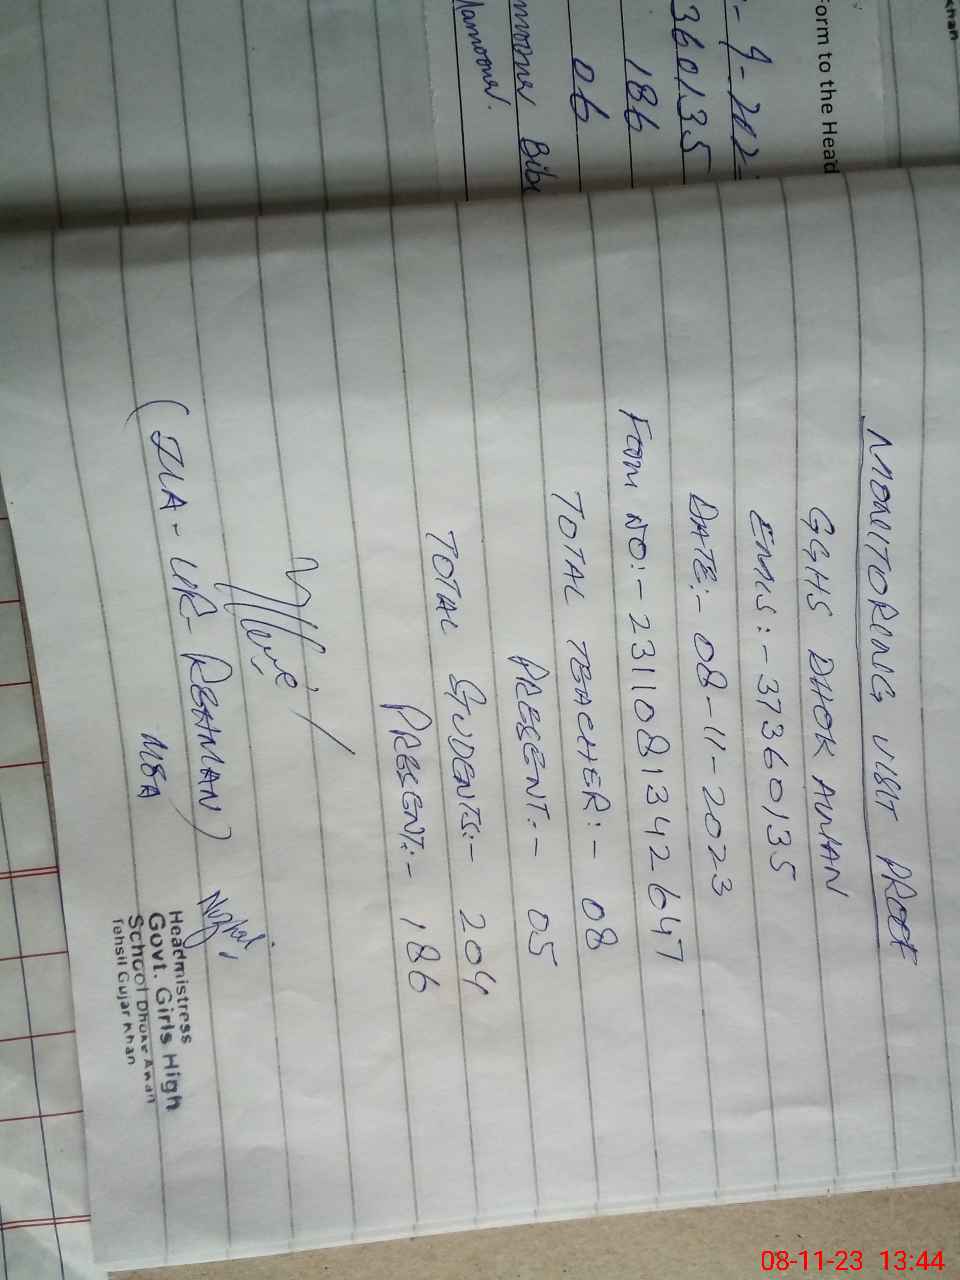 MONITORING VISIT PROOF
GGHS DHOK AWAN
EMIS:- 37360135
DATE:- 08-11-2023
FORM NO:- 2311081342647
TOTAL TEACHER:- 08
PRESENT:- 05
TOTAL STUDENTS:- 204
PRESENT:- 186
(ZIA-UR-REHMAN)
MEA
Headmistress
Govt. Girls High
School Dhoke Awan
Tehsil Gujar Khan
Form to the Head
360135
186
06
Bibi
khan
08-11-23 13:44